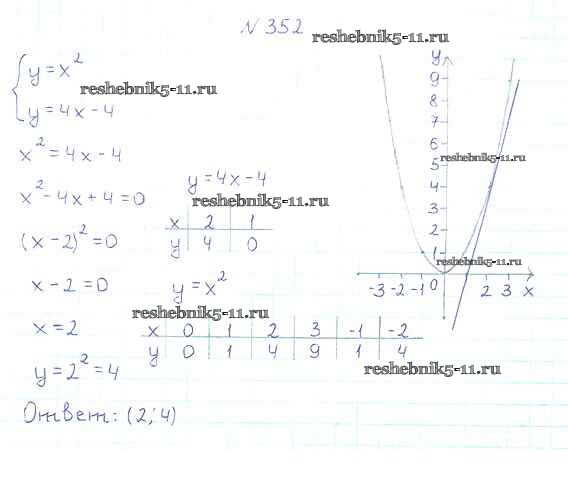 N 352
reshebnik5-11.ru
y = x²
reshebnik5-11.ru
y = 4x - 4
x² = 4x - 4
x² - 4x + 4 = 0
(x - 2)² = 0
x - 2 = 0
x = 2
y = 2² = 4
Ответ: (2; 4)
y = 4x - 4
reshebnik5-11.ru
x 2 1
y 4 0
y = x²
reshebnik5-11.ru
x 0 1 2 3 -1 -2
y 0 1 4 9 1 4
reshebnik5-11.ru
y
9
8
7
6
5
reshebnik5-11.ru
4
3
2
1
reshebnik5-11.ru
-3 -2 -1 0 2 3 x